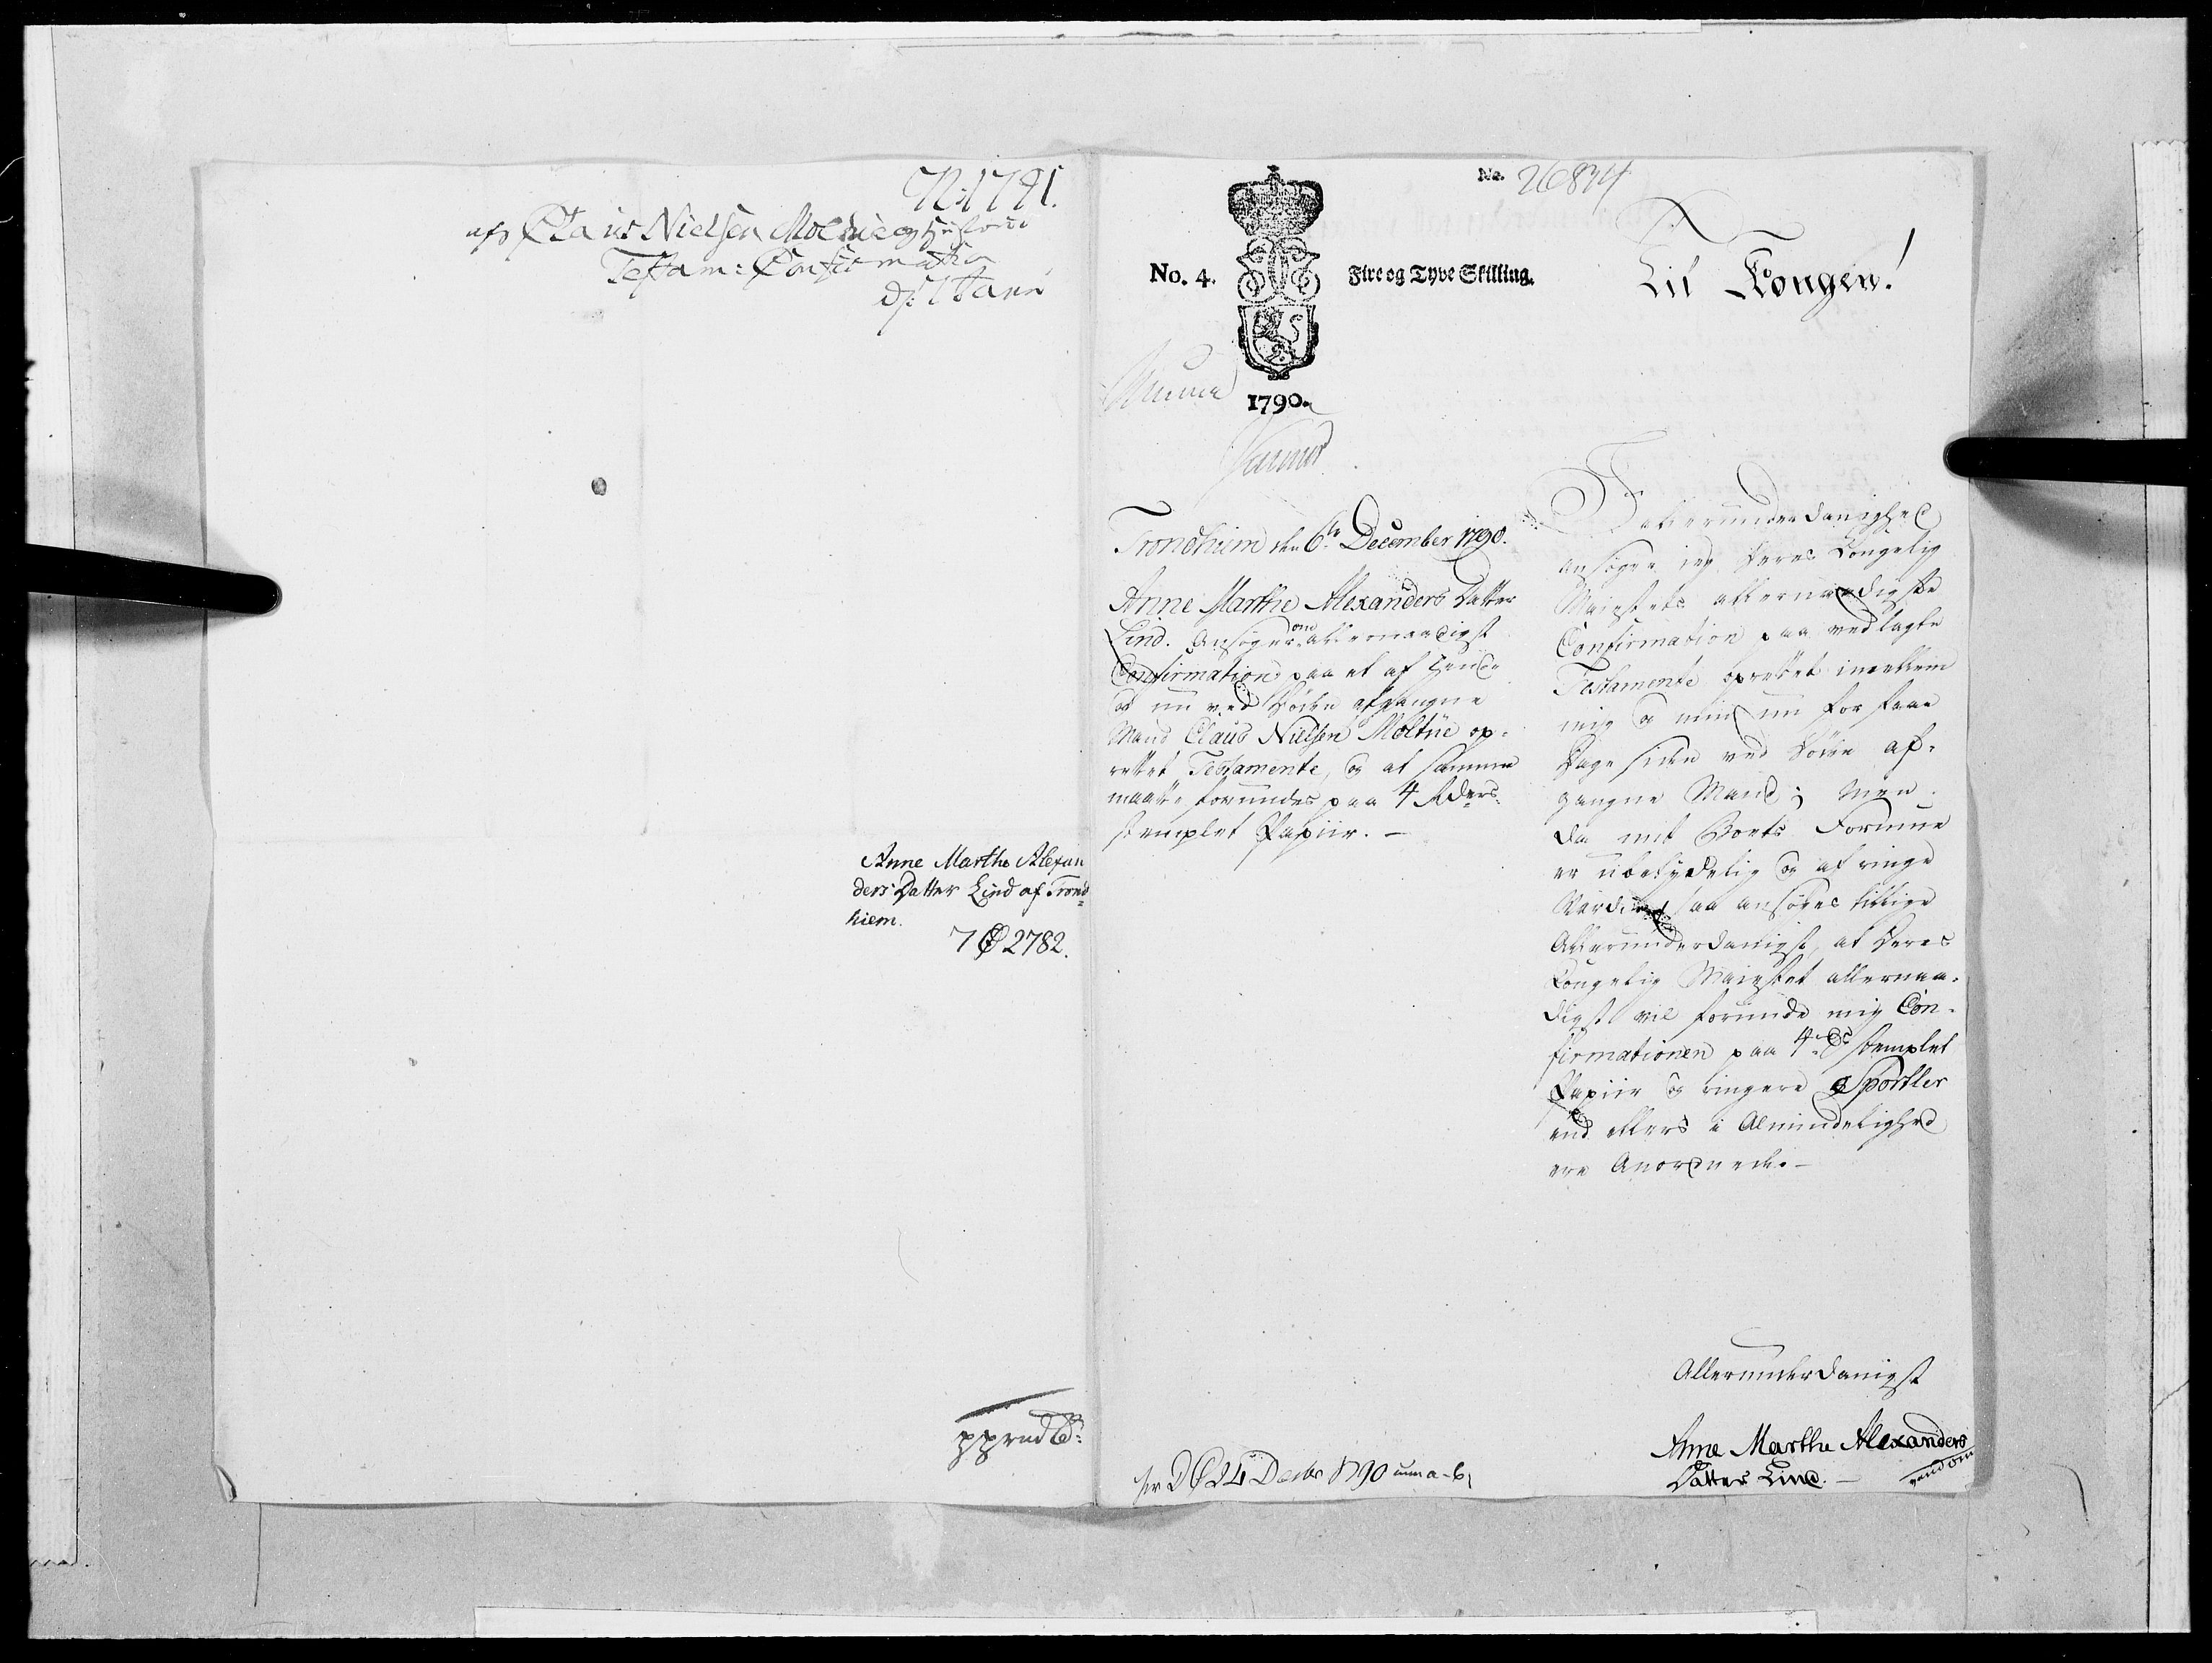 N: 1791.
Claus Nielsen Moltue og Hustrues
Testam: Confirmation
d: 7 Janu
Anne Marthe Alexan
ders Datter Lind af Trond=
hiem.
2782.
No. 26874
No. 4. Fire og Tyve Skilling.
1790.
Til Kongen!
Trondhiem den 6te December 1790.
Anne Marthe Alexanders Datter
Lind. Ansøger om allernaadigst
Confirmation paa et af Hende
og nu ved Døden afgangne
Mand Claus Nielsen Moltue op=
rettet Testamente, og at samme
maatte forundes paa 4 Rdlers
stemplet Papiir. —
I allerunderdanighed
ansøger ieg Deres Kongelig
Maiestets allernaadigste
Confirmation paa vedlagte
Testamente oprettet imellem
mig og min nu for faae
Dage siden ved Døden af=
gangne Mand; Men
da mit Boets Formue
er ubetydelig og af ringe
Værdie, saa ansøges tillige
Allerunderdanigst, at Deres
Kongelig Maiestet allernaa=
digst vil forunde mig Con=
firmationen paa 4 stemplet
Papiir og ringere Sportler
end ellers i Almindelighed
ere Anordnede. —
Allerunderdanigst
Anne Marthe Alexanders
Datter Lind. —
vend om
24 Decbr 1790